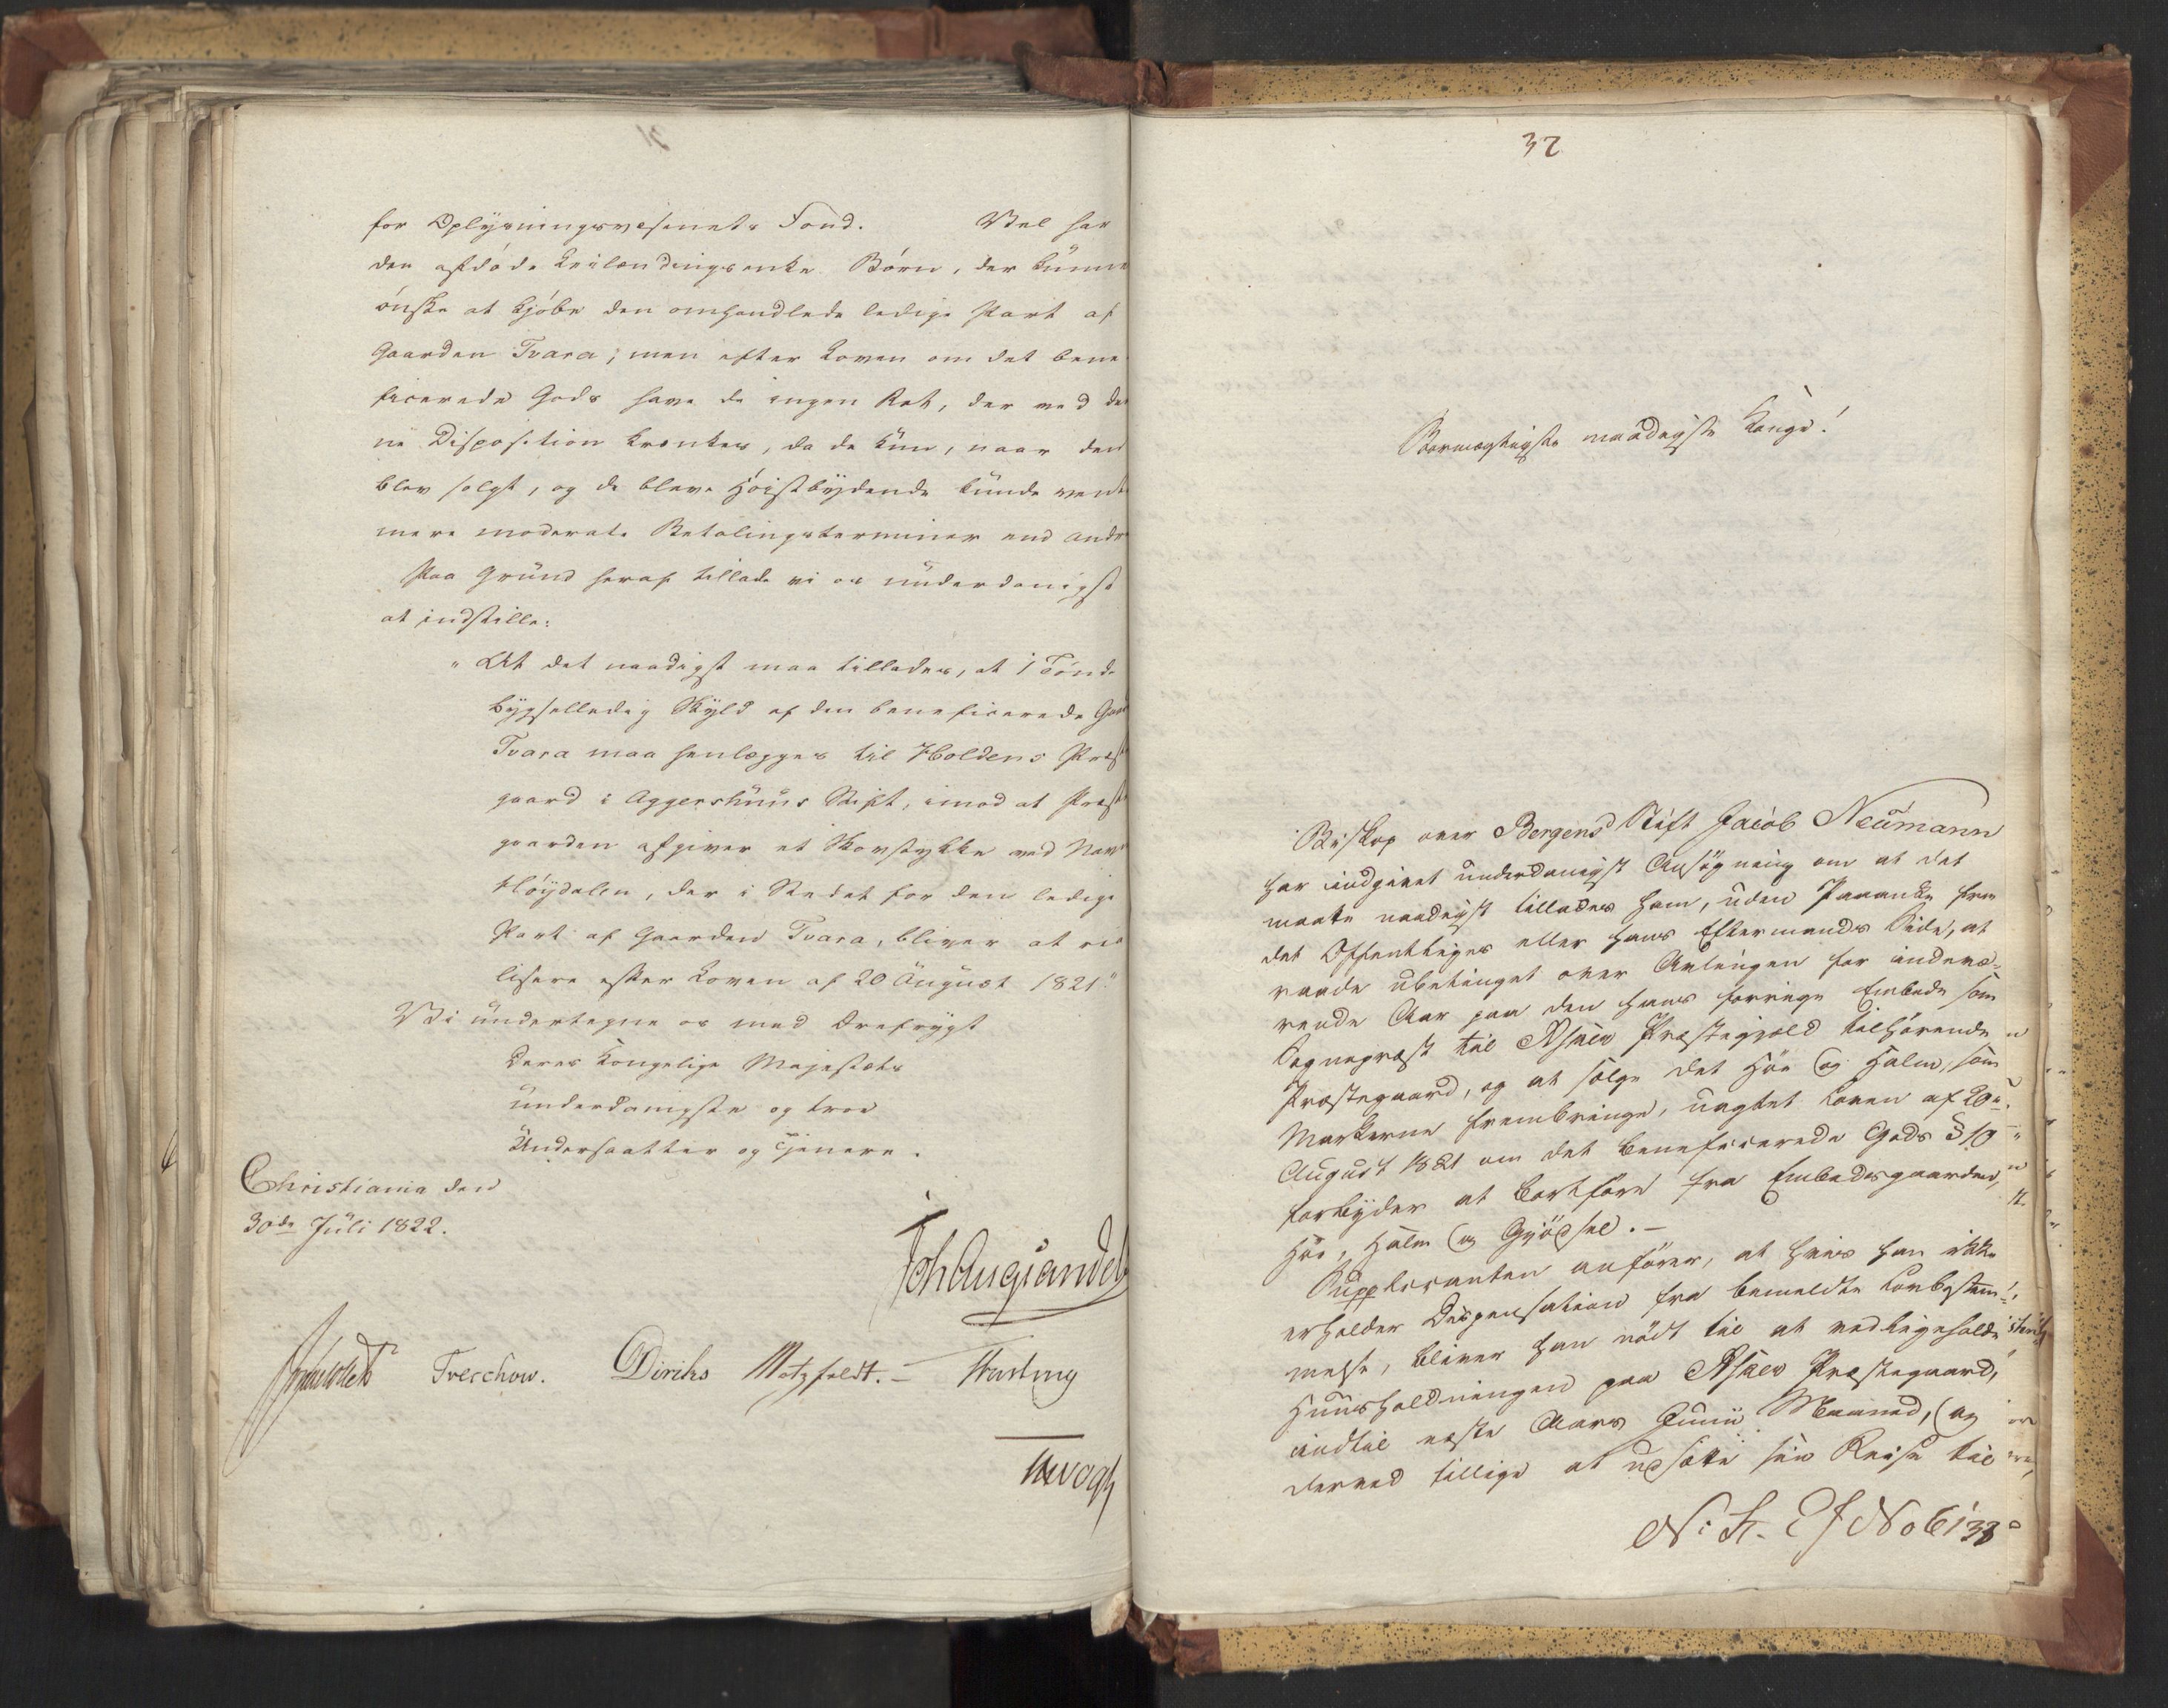 for Oplysningsvæsenets Fond. Vel har
den afdøde Leilændings enke Børn, der kunne
ønske at kjøbe den omhandlede ledige Part af
Gaarden Tvara; men efter Loven om det bene
ficerede Gods have de ingen Ret, der ved den
ne Disposition krænkes, da de kun, naar den
blev solgt, og de bleve Høistbydende kunde vente
mere moderate Betalingsterminer end andre
Paa Grund heraf tillade vi os underdanigst
at indstille:
"At det naadigst maa tillades, at 1 Tønde
bygselledig Skyld af den beneficerede Gaard
Tvara maa henlægges til Holdens Præste
gaard i Aggershuus Stift, imod at Præste
gaarden afgiver et Skovstykke ved Navn
Høydalen, der i Stedet for den ledige
Part af Gaarden Tvara, bliver at rea
lisere efter Loven af 20 August 1821."
Vi undertegne os med Ærefrygt
Deres Kongelige Majestæts
underdanigste og troe
Undersaatter og Tjenere.
Christiania den
30de Juli 1822.
Joh Aug Sandels
Treschow. Diriks Motzfeldt. -
32
Stormægtigste naadigste Konge!
Biskop over Bergens Stift Jacob Neumann
har indgivet underdanigst Ansøgning om at det
maatte naadigst tillades ham, uden Paaanke fra
det Offentliges eller hans Eftermands Side, at
raade ubetinget over Avlingen for indevæ-
rende Aar paa den hans forrige Embede som
Sognepræst til Asker Præstegjæld tilhørende
Præstegaard, og at sælge det Høe og Halm, som
Markerne frembringe, uagtet Loven af 20
August 1821 om det beneficerede Gods § 10
forbyder at bortføre fra Embedsgaarden,
Høe, Halm og Gjødsel. -
Supplicanten anfører, at hvis han ikke
erholder Dispensation fra bemeldte Lovbestem-
melse, bliver han nødt til at vedligeholde
Huusholdningen paa Asker Præstegaard,
indtil næste Aars Junii Maaned, og
derved tillige at udsætte sin Reise til